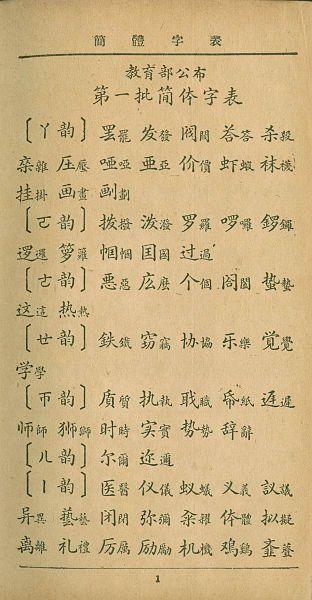 簡體字表
教育部公布
第一批简体字表
〔ㄚ韵〕罢罷 发發 阀閥 荅答 杀殺
杂雜 压壓 哑啞 亚亞 价價 虾蝦 袜襪
挂掛 画畫 劃
〔ㄛ韵〕拨撥 泼潑 罗羅 啰囉 鑼
逻邏 箩籮 帼幗 国國 过過
〔ㄜ韵〕恶惡 庅麼 个個 阁閣 蛰蟄
这這 热熱
〔ㄝ韵〕鉄鐵 窃竊 协協 乐樂 覚覺
学學
〔ㄭ韵〕质質 执執 职職 帋紙 迟遲
师師 狮獅 时時 实實 势勢 辞辭
〔ㄦ韵〕尔爾 迩邇
〔ㄧ韵〕医醫 仪儀 蚁蟻 义義 議
异異 艺藝 闭閉 弥彌 籴糴 体體 拟擬
离離 礼禮 厉厲 励勵 机機 鸡鷄 虀
1